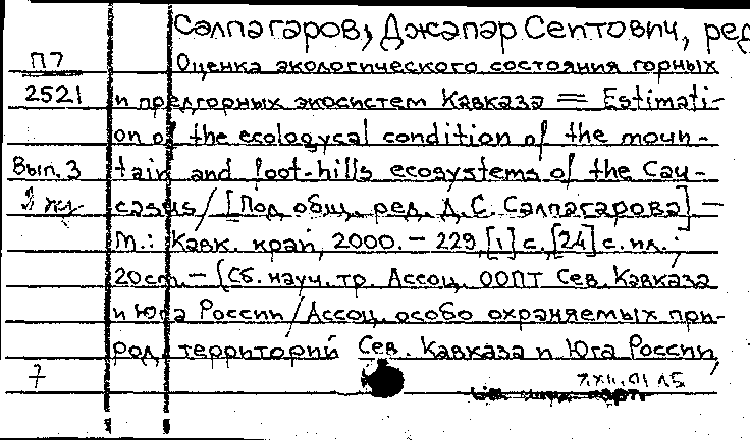 Салпагаров, Джапар Сеитович, ред
П7
Оценка экологического состояния горных
2521
и предгорных экосистем Кавказа = Estimati-
on of the ecologycal condition of the moun-
Вып. 3
tain and foot-hills ecosystems of the Cau-
casus / [Под общ. ред. Д.С. Салпагарова]. —
М.: Кавк. край, 2000. — 229,[1] с.,[24] с. ил.;
20см. — (Сб. науч. тр. Ассоц. ООПТ Сев. Кавказа
и Юга России / Ассоц. особо охраняемых при-
род. территорий Сев. Кавказа и Юга России,
7